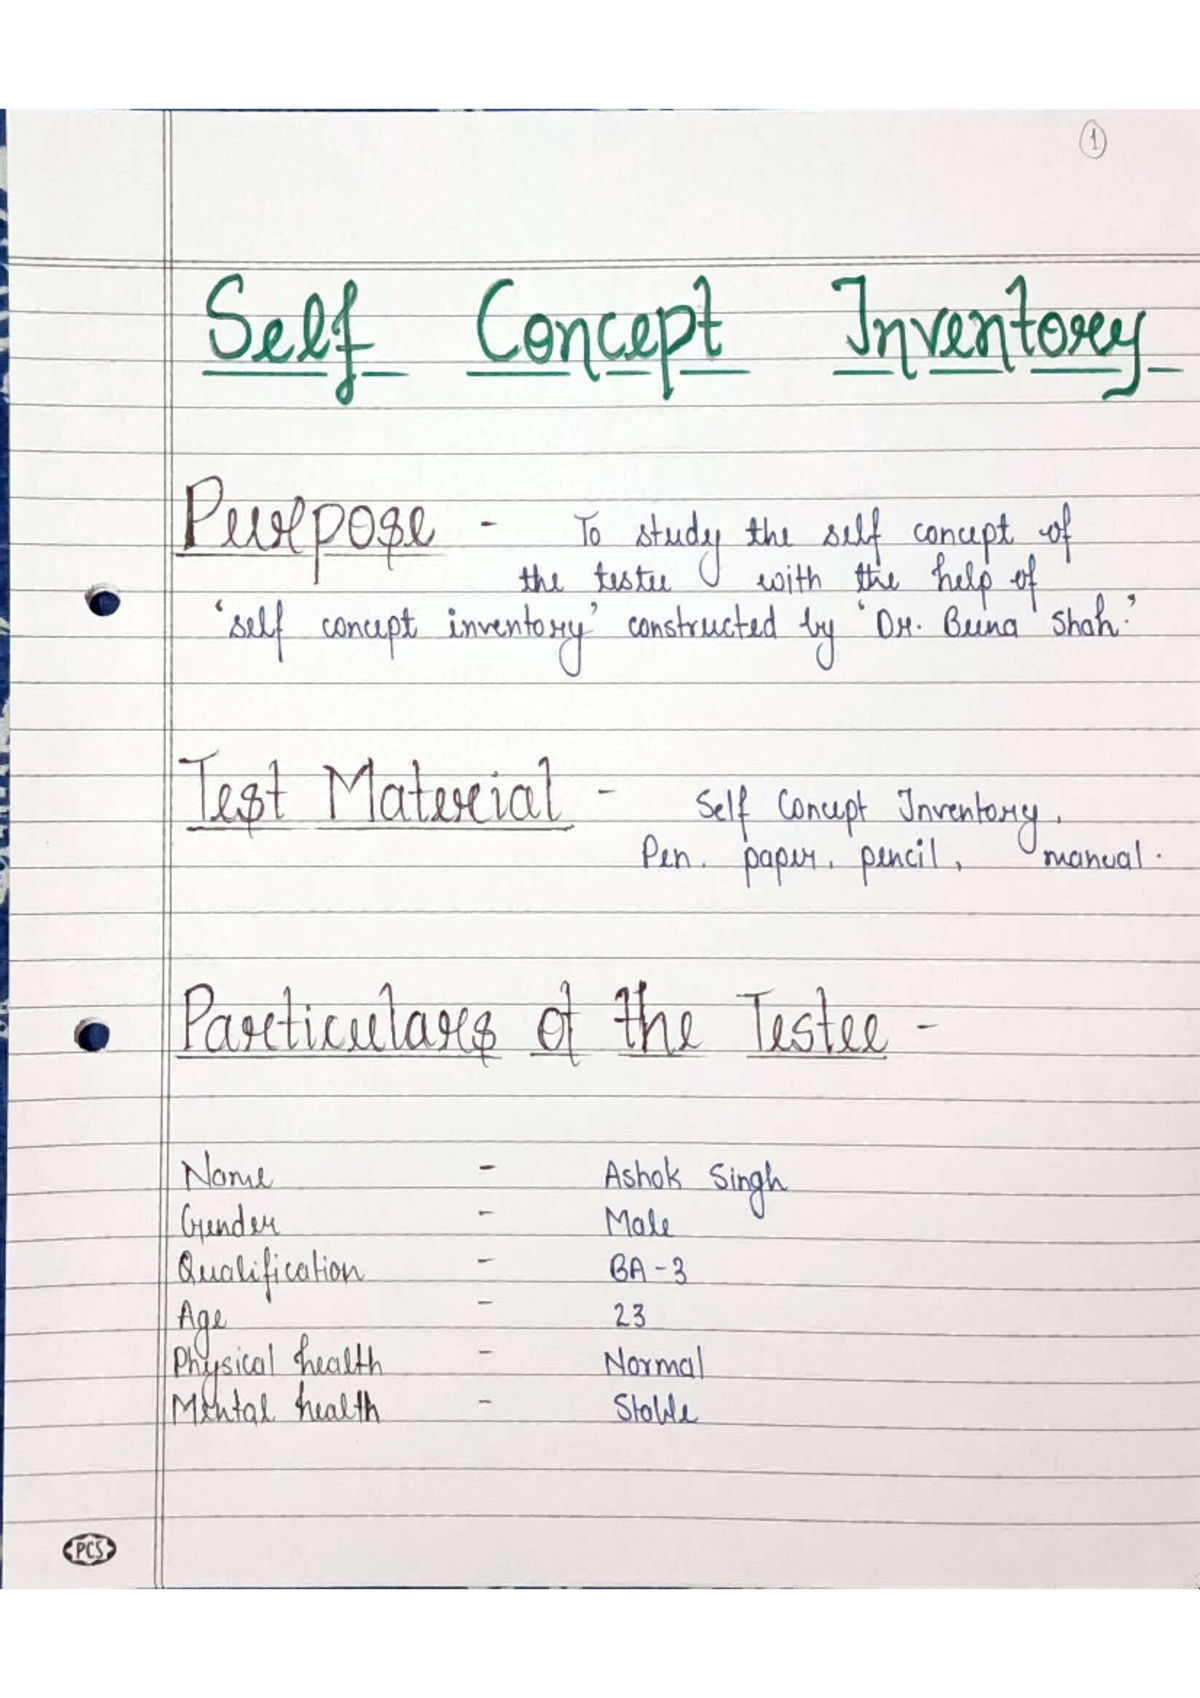 1
Self Concept Inventory
Purpose - To study the self concept of
the testee with the help of
'self concept inventory' constructed by 'Dr. Beena Shah.'
Test Material - Self Concept Inventory,
Pen, paper, pencil, manual.
Particulars of the Testee -
Name - Ashok Singh
Gender - Male
Qualification - BA-3
Age - 23
Physical health - Normal
Mental health - Stable
PCS